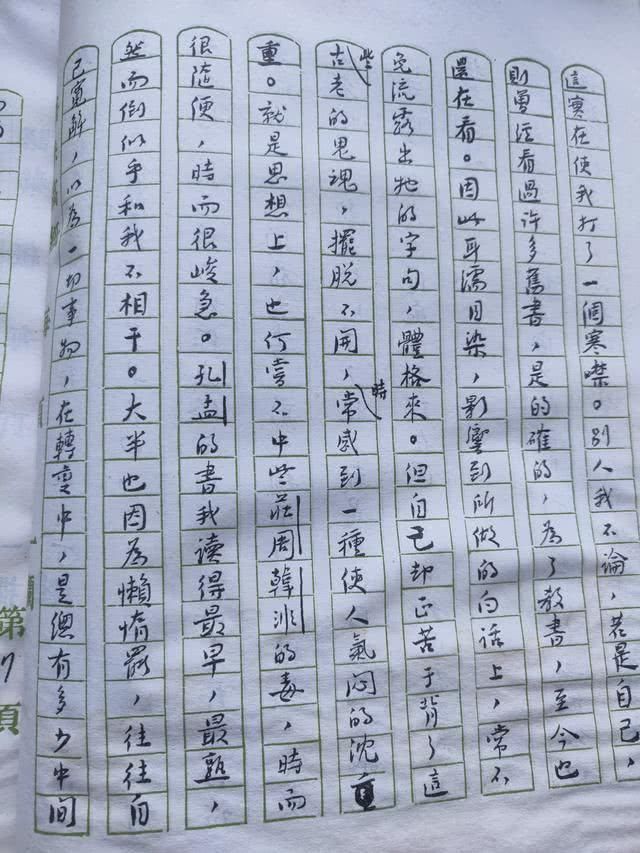 這實在使我打了一個寒噤。別人我不論，若是自己，
則曾經看過許多舊書，是的確的，為了教書，至今也
還在看。因此耳濡目染，影響到所做的白話上，常不
免流露出牠的字句，體格來。但自己卻正苦于背了這
些古老的鬼魂，擺脫不開，時常感到一種使人氣悶的沈重
重。就是思想上，也何嘗不中些莊周韓非的毒，時而
很隨便，時而很峻急。孔孟的書我讀得最早，最熟，
然而倒似乎和我不相干。大半也因為懶惰罷，往往自
己寬解，以為一切事物，在轉變中，是總有多少中間
第
7
頁